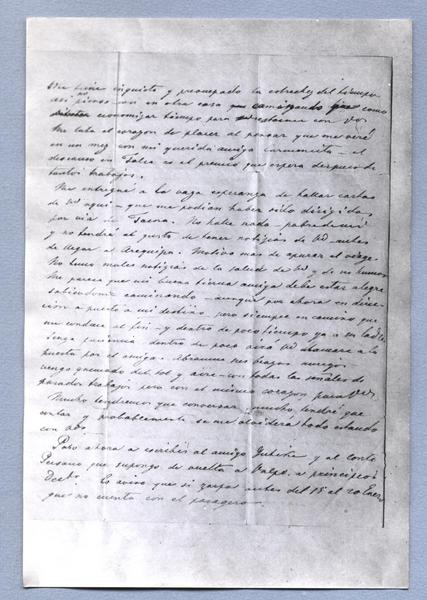 Me tiene inquieto y preocupado la estrechez del tiempo
asi no pienso en otra cosa que caminando como
economizar tiempo para estarme con Vds
Me late el corazon de placer al pensar que me veré
en un mes con mi querida amiga Carmencita – el
descanso en Talca es el premio que espera despues de
tantos trabajos.
Me entregué a la vaga esperanza de hallar cartas
de Vd aqui – que me podian haber sido dirigidas
por via de Tacna. No hallé nada – pobre de mi
y no tendré el gusto de tener noticias de Vd antes
de llegar a Arequipa. Motivo mas de apurar el viage.
No tuve malas noticias de la salud de Vd y de su humor
Me parece que mi buena tierna amiga debe estar alegre
sabiendome caminando – aunque por ahora en direc-
cion opuesta a mi destino pero siempre en camino que
me conduce al fin – y dentro de poco tiempo ya a su lado
tenga paciencia dentro de poco oirá Vd llamar a la
puerta por el amigo. Abranme sus brazos amigos
vengo quemado del sol y aire – con todas las señales de
pasados trabajos pero con el mismo corazon para Vds.
Mucho tendremos que conversar, mucho tendré que
contar y probablemente se me olvidera todo estando
con Vds.
Paso ahora a escribir al amigo Gutike y al conde
Pusano que supongo de vuelta a Valpo. a principios
Decbr. Le aviso que si zarpa antes del 15 al 20 Enero
que no cuenta con el pasagero